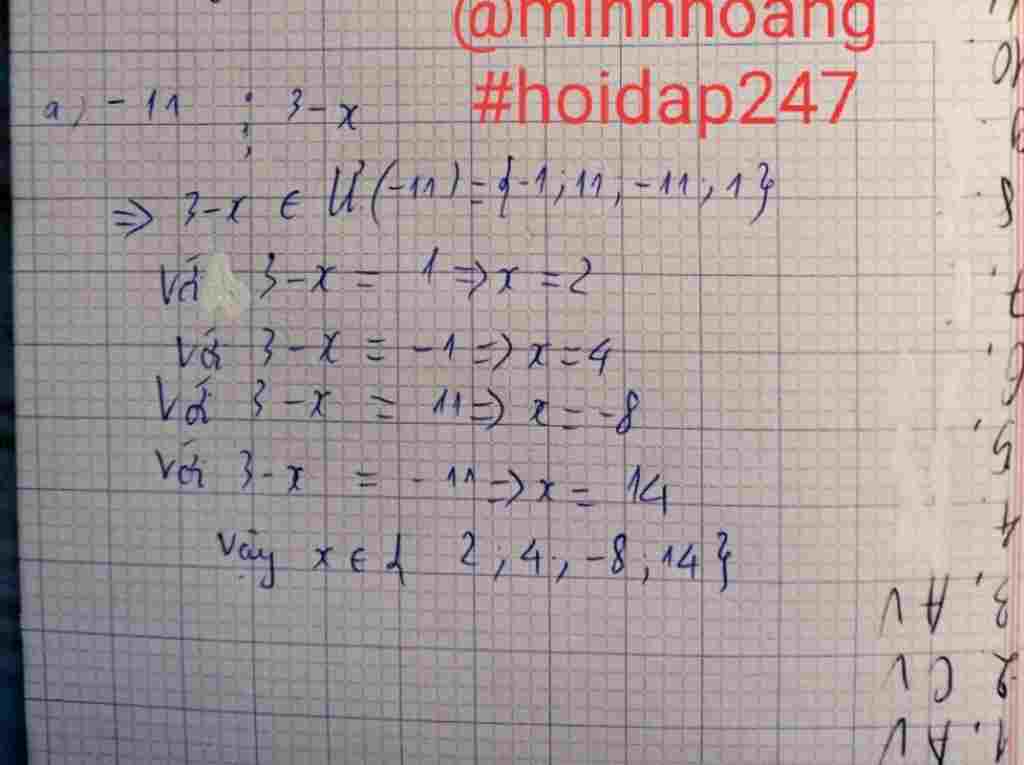 @minhhoang
#hoidap247
a) -11 ⋮ 3-x
=> 3-x ∈ Ư(-11) = {-1; 11; -11; 1}
Với 3-x = 1 => x = 2
Với 3-x = -1 => x = 4
Với 3-x = 11 => x = -8
Với 3-x = -11 => x = 14
Vậy x ∈ { 2; 4; -8; 14}
1. AV
2. CV
3. AV
4.
5.
6.
7.
8.
9.
10.